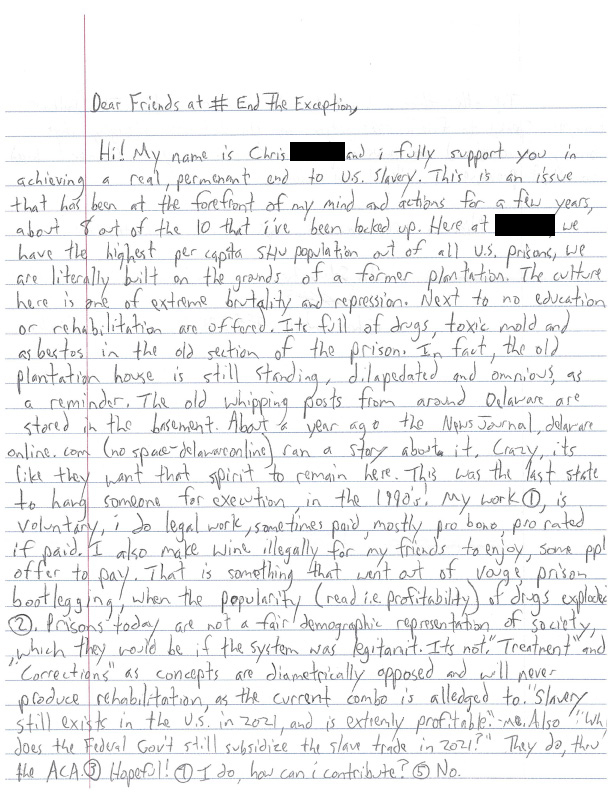 Dear Friends at # End The Exception,
Hi! My name is Chris and i fully support you in
achieving a real, permenant end to U.S. Slavery. This is an issue
that has been at the forefront of my mind and actions for a few years,
about 8 out of the 10 that i've been locked up. Here at we
have the highest per capita SHU population out of all U.S. prisons, we
are literally built on the grounds of a former plantation. The culture
here is one of extreme brutality and repression. Next to no education
or rehabilitation are offered. Its full of drugs, toxic mold and
asbestos in the old section of the prison. In fact, the old
plantation house is still standing, dilapedated and omnious, as
a reminder. The old whipping posts from around Delaware are
stored in the basement. About a year ago the News Journal, delaware
online.com (no space-delawareonline) ran a story about it. Crazy, its
like they want that spirit to remain here. This was the last state
to hang someone for execution, in the 1990's! My work ①, is
voluntary, i do legal work, sometimes paid, mostly pro bono, pro rated
if paid. I also make wine illegally for my friends to enjoy, some ppl
offer to pay. That is something that went out of vouge, prison
bootlegging, when the popularity (read i.e. profitability) of drugs exploded
②. Prisons today are not a fair demographic representation of society,
which they would be if the system was legitamit. Its not. "Treatment" and
"Corrections" as concepts are diametrically opposed and will never
produce rehabilitation, as the current combo is alledged to. "Slavery
still exists in the U.S. in 2021, and is extremly profitable."-me. Also "Wh
does the Federal Gov't still subsidize the slave trade in 2021?" They do, thru
the ACA. ③ Hopeful! ④ I do, how can i contribute? ⑤ No.